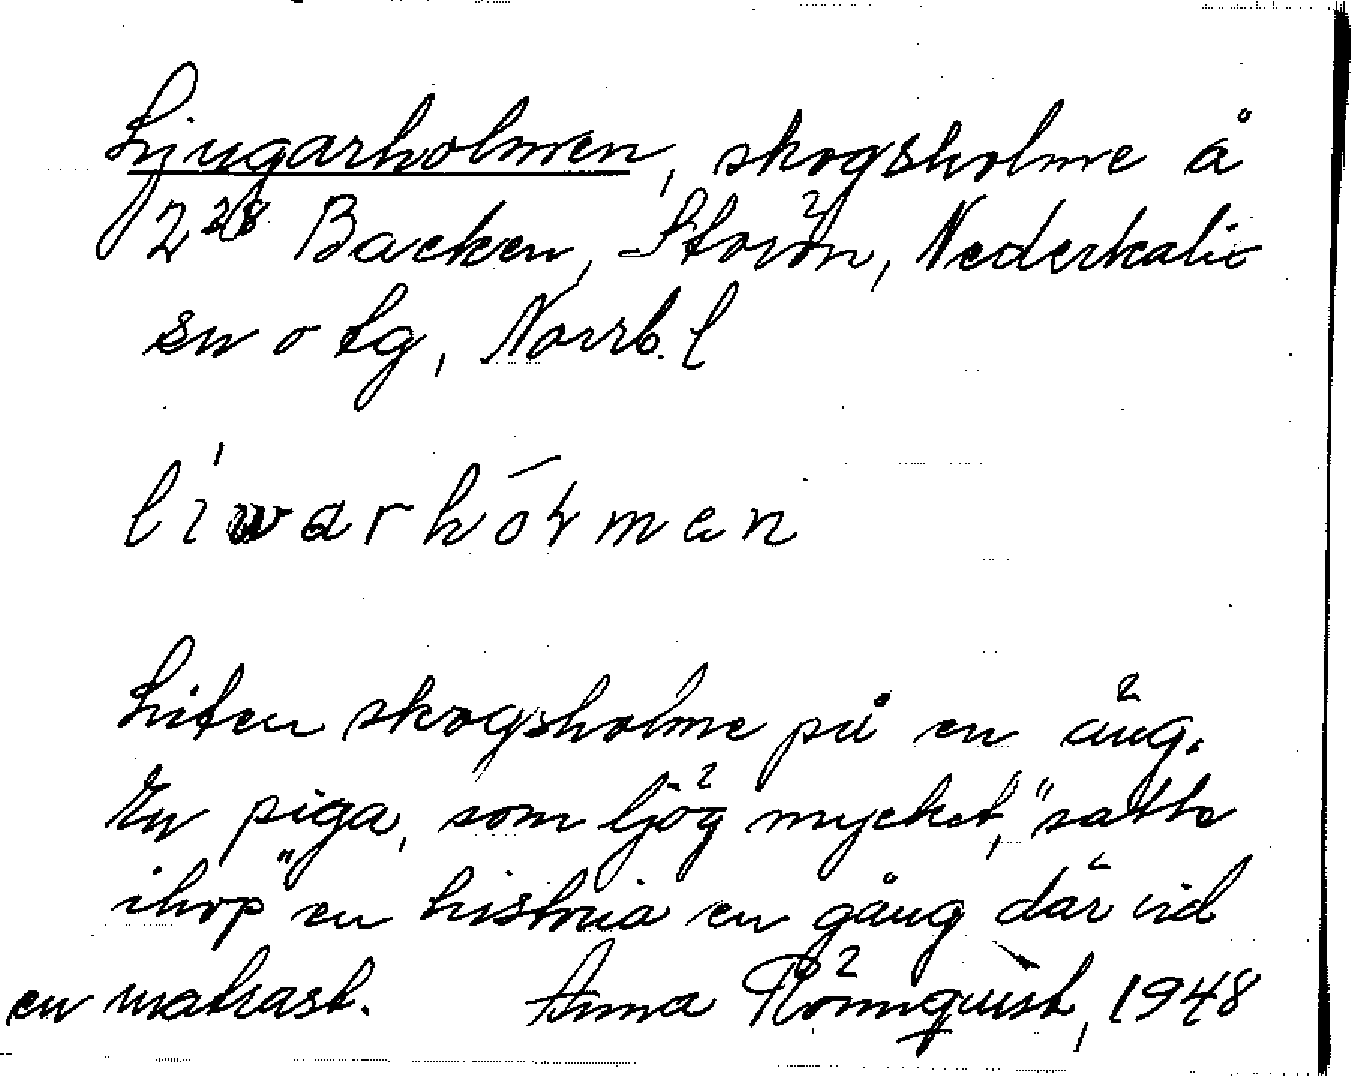 Ljugarholmen, skogsholme å
2²⁸ Backen, Storön, Nederkalix
sn o tg, Norrb. l
lí w a r h ó ɫ m e n
Liten skogsholme på en äng.
En piga, som ljög mycket, "satte
ihop" en historia en gång där vid
en matrast. Anna Rönnquist, 1948